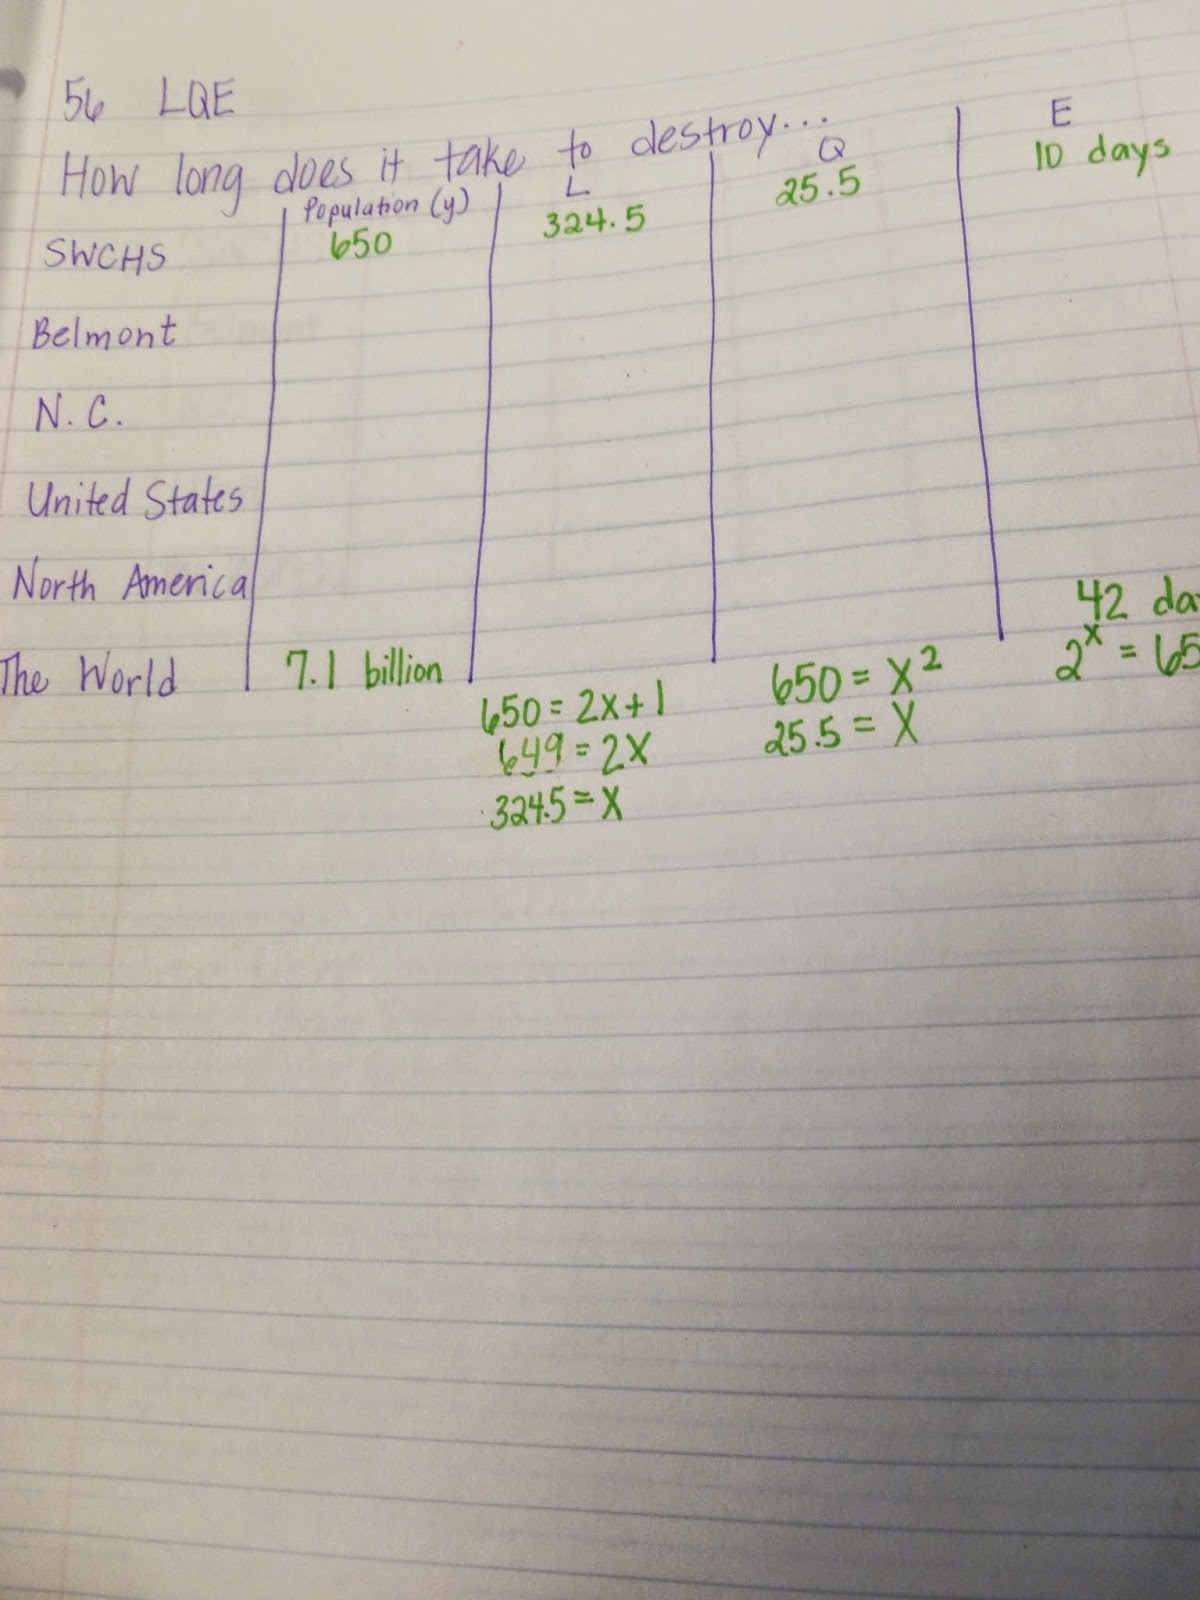 56 LQE
How long does it take to destroy...
Population (y) L Q E
SWCHS 650 324.5 25.5 10 days
Belmont
N.C.
United States
North America
The World 7.1 billion 42 da
650 = 2x+1 650 = x² 2ˣ = 65
649 = 2x 25.5 = x
324.5 = x